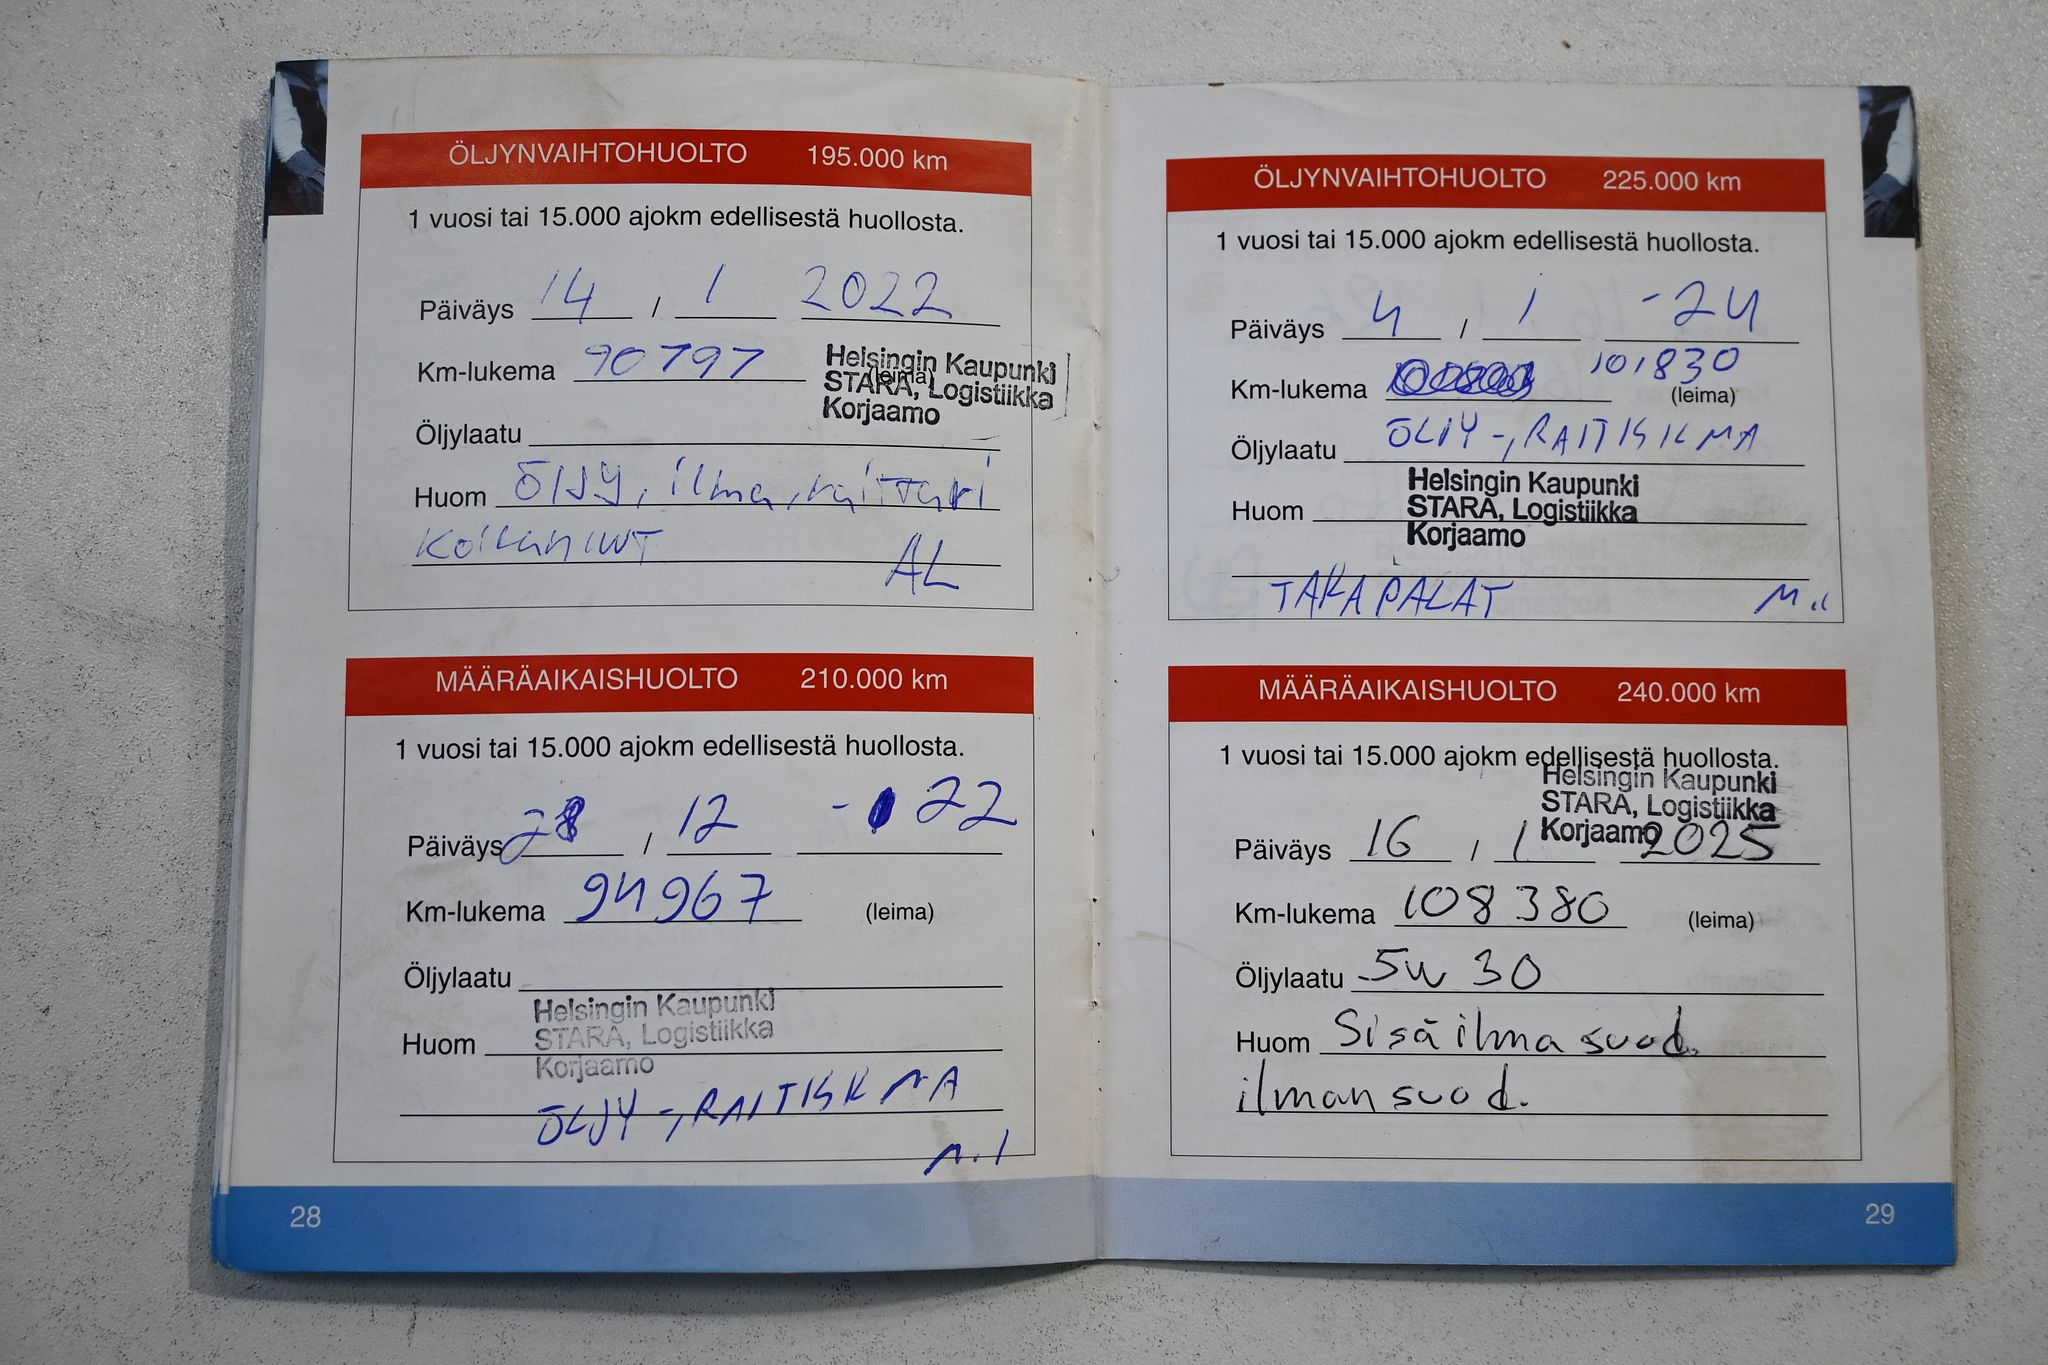 ÖLJYNVAIHTOHUOLTO 195.000 km
1 vuosi tai 15.000 ajokm edellisestä huollosta.
Päiväys 14 / 1 2022
Km-lukema 90797 (leima)
Helsingin Kaupunki
STARA, Logistiikka
Korjaamo
Öljylaatu
Huom Öljy, ilma, raittari
AL
MÄÄRÄAIKAISHUOLTO 210.000 km
1 vuosi tai 15.000 ajokm edellisestä huollosta.
Päiväys 28 / 12 -22
Km-lukema 94967 (leima)
Öljylaatu
Helsingin Kaupunki
STARA, Logistiikka
Huom
Korjaamo
ÖLJY-, RAITISILMA
28
ÖLJYNVAIHTOHUOLTO 225.000 km
1 vuosi tai 15.000 ajokm edellisestä huollosta.
Päiväys 4 / 1 -24
Km-lukema 101830 (leima)
Öljylaatu ÖLJY-, RAITISILMA
Helsingin Kaupunki
Huom STARA, Logistiikka
Korjaamo
TAKAPALAT
MÄÄRÄAIKAISHUOLTO 240.000 km
1 vuosi tai 15.000 ajokm edellisestä huollosta.
Helsingin Kaupunki
STARA, Logistiikka
Korjaamo
Päiväys 16 / 1 2025
Km-lukema 108380 (leima)
Öljylaatu 5w 30
Huom Sisäilmasuod.
ilmansuod.
29